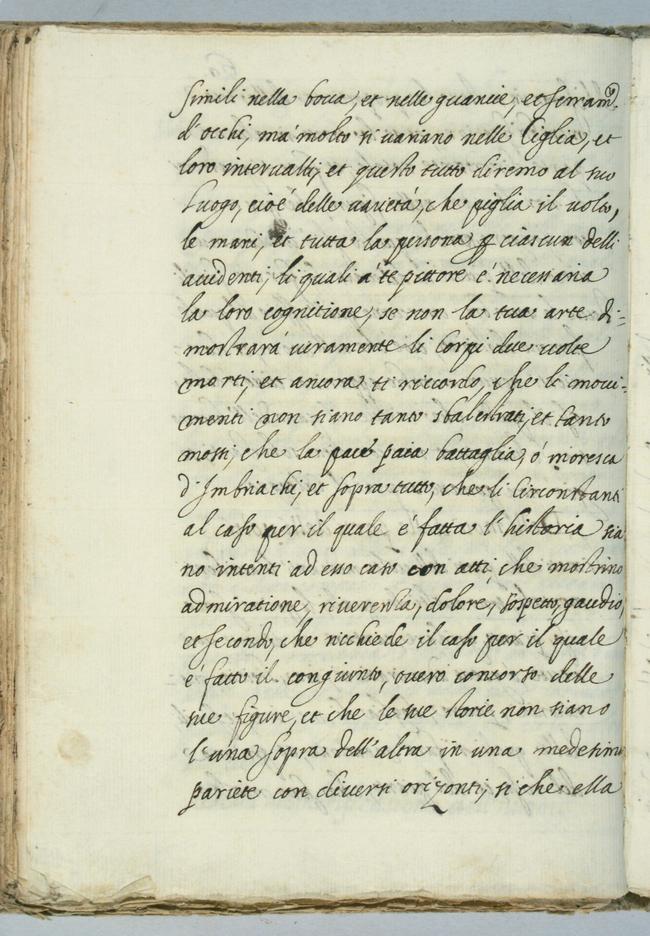 simili nella bocca, et nelle guancie, et serram.to
d'occhi, ma molto si variano nelle Ciglia, et
loro intervalli, et questo tutto diremo al suo
Luogo, cioé delle varietá, che piglia il volto,
le mani, et tutta la persona p ciascun delli
accidenti, li quali á te pittore é necessaria
la loro cognitione, se non la tua arte di=
mostrará veramente li Corpi due volte
morti, et ancora ti riccordo, che li movi=
menti non siano tanto sbalestrati, et tanto
mossi, che la pace paia battaglia, ó moresca
d'Imbriachi, et sopra tutto, che li Circonstanti
al caso per il quale é fatta l'historia sia
no intenti ad esso caso con atti, che mostrino
admiratione, riverentia, dolore, sospetto, gaudio,
et secondo, che ricchiede il caso per il quale
é fatto il congiunto, overo concorso delle
tue figure, et che le tue storie non siano
l'una sopra dell'altra in una medesima
pariete con diversi orizonti, si che ella